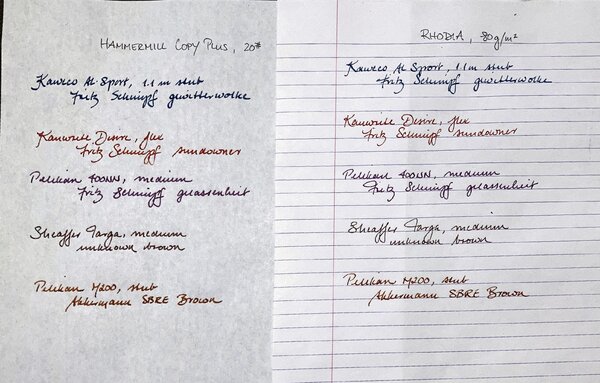 HAMMERMILL COPY PLUS, 20#
Kaweco Al Sport, 1.1 m stub
Fritz Schimpf gewitterwolke
Desire, flex
Fritz Schimpf sundowner
Pelikan 400NN, medium
Fritz Schimpf gelassenheit
Sheaffer Targa, medium
unknown brown
Pelikan M200, stub
Akkermann SBRE Brown
RHODIA, 80g/m²
Kaweco Al Sport, 1.1 m stub
Fritz Schimpf gewitterwolke
Desire, flex
Fritz Schimpf sundowner
Pelikan 400NN, medium
Fritz Schimpf gelassenheit
Sheaffer Targa, medium
unknown brown
Pelikan M200, stub
Akkermann SBRE Brown